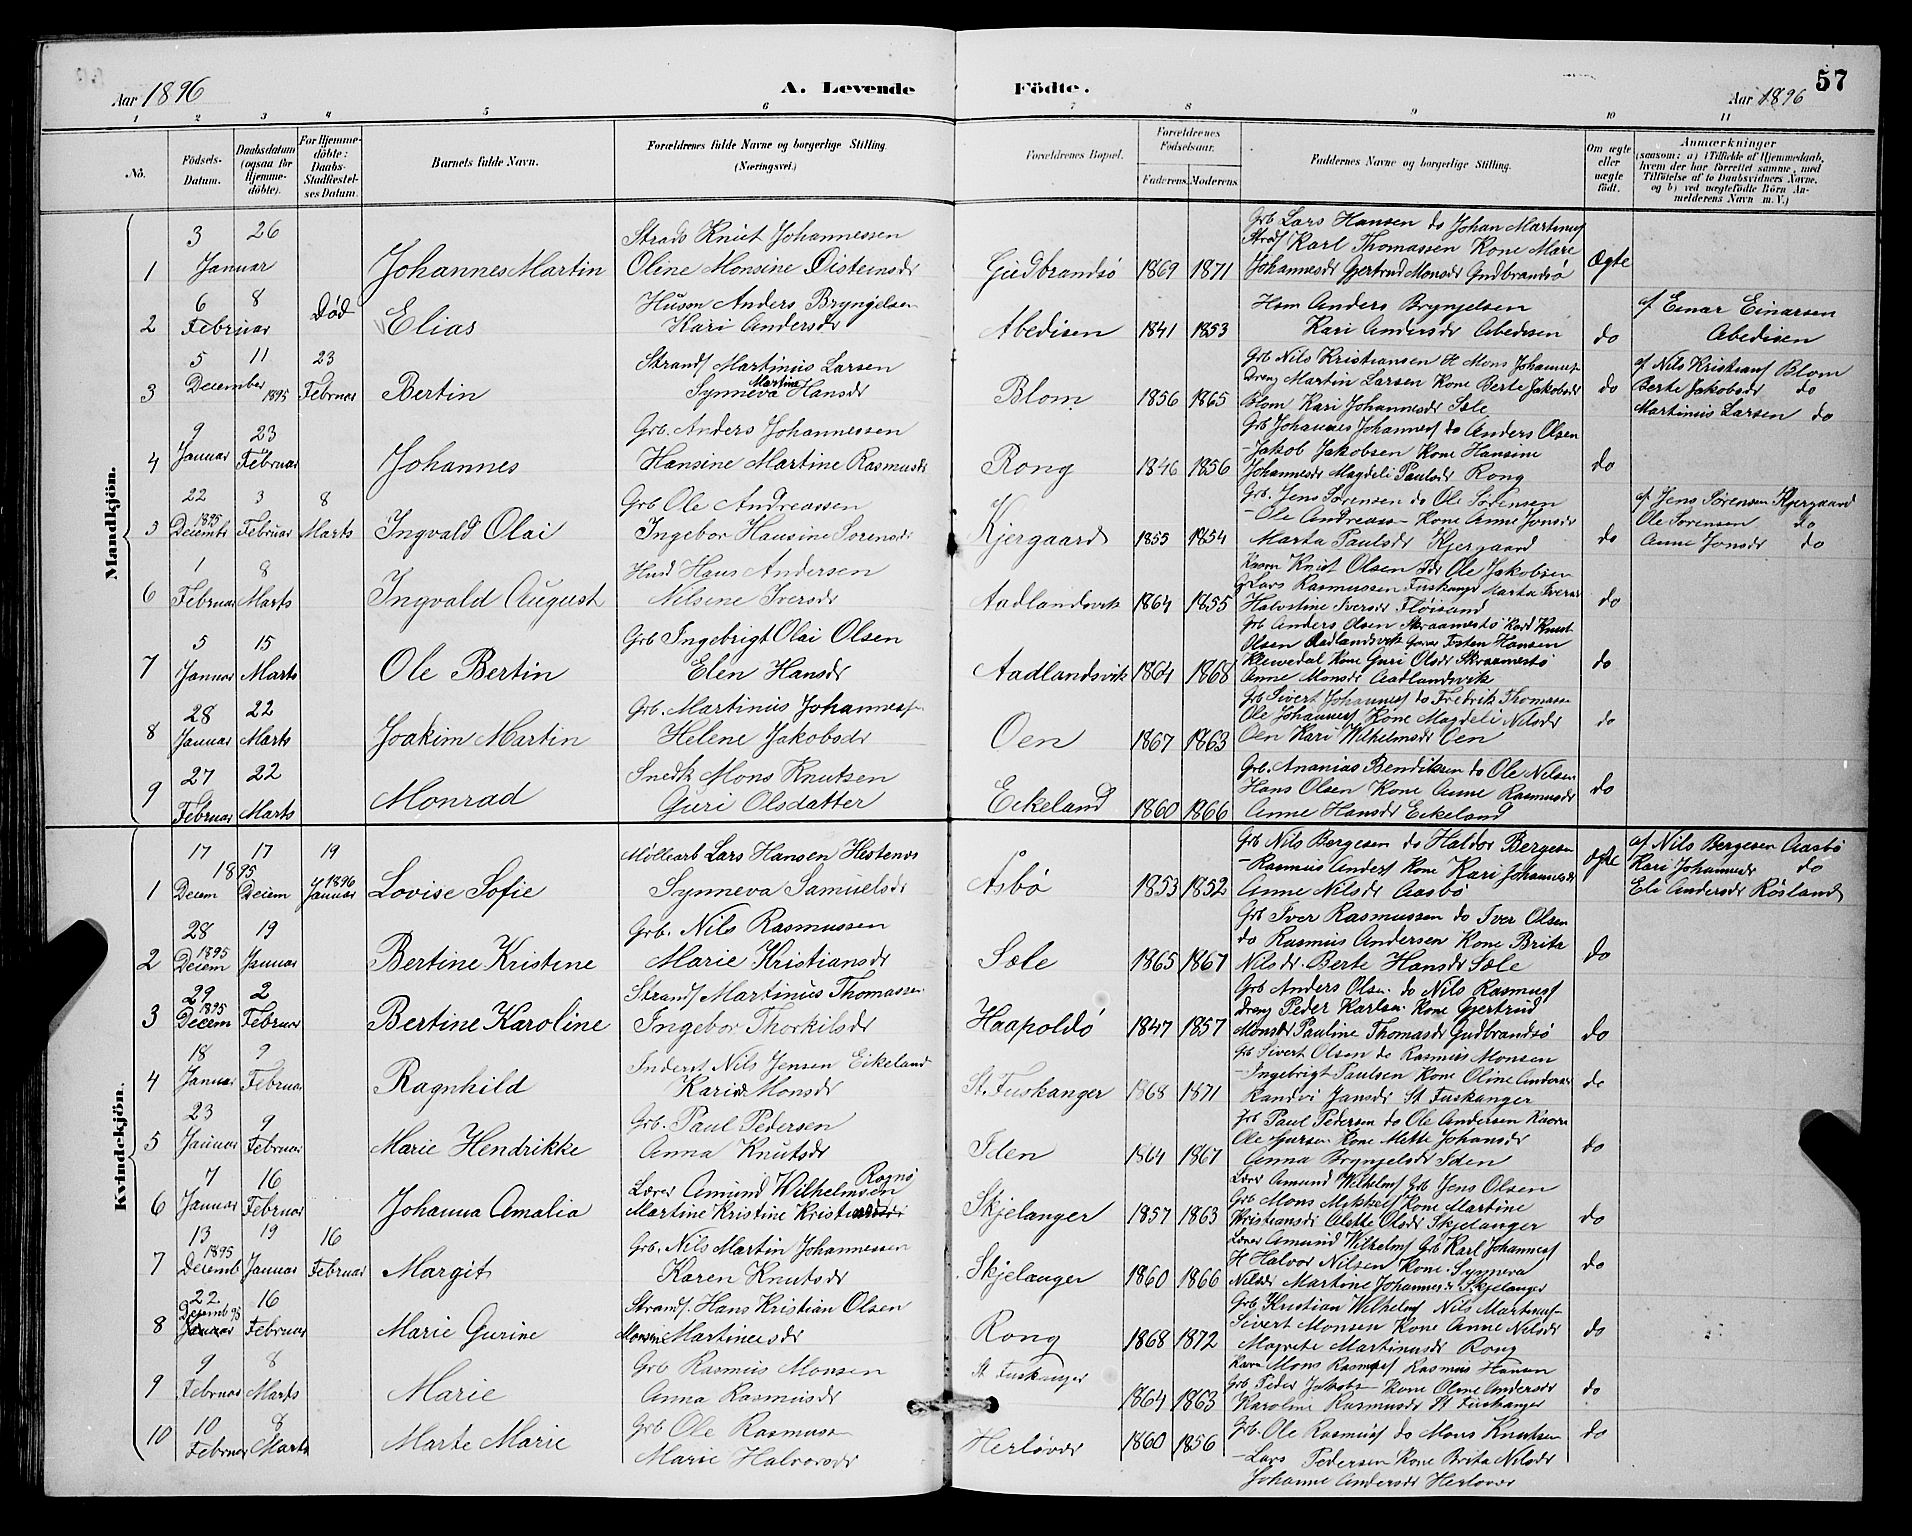 Aar 1896
A. Levende
Födte.
57
Aar 1896
1 2 3 4 5 6 7 8 9 10 11
No.
Födsels-Datum.
Daabsdatum (ogsaa for Hjemme-döbte).
For Hjemme-döbte: Daabs-Stadfæstel-ses Datum.
Barnets fulde Navn.
Forældrenes fulde Navne og borgerlige Stilling (Næringsvei.)
Forældrenes Bopæl.
Forældrenes Födselsaar.
Faderens. Moderens.
Faddernes Navne og borgerlige Stilling.
Om ægte eller uægte födt.
Anmærkninger
(saasom: a) i Tilfælde af Hjemmedaab,
hvem der har forrettet samme, med
Tilföielse af to Daabsvidners Navne,
og b) ved uægtefödte Börn An-
melderens Navn m. V.)
Mandkjön.
1 3 Januar 26 Johannes Martin
Strads Knut Johannessen
Oline Monsine Oisteinsdr
Gudbrandsö 1869 1871
Grb Lars Hansen do Johan Martinus
Karl Thomassen Kone Mari
Johannesdr Gjertrud Monsdr Gudbrandsö
Ægte
2 6 8 Februar Död Elias
Husm Anders Bryngelsen
Kari Andersdr
Abedisen 1841 1853
Hsm Anders Brynjelsen
Kari Andersdr Abedisen
do
af Einar Einarsen
Abedisen
3 5 December 1895 11 23 Februar Bertin
Strands Martinus Larsen
Synneva Martine Hansdr
Blom 1856 1865
Grb Nils Kristiansen H Mons Johannes
Dreng Martin Larsen Kone Berte Jakobsdr
Blom Kari Johannesdr Sæle
do
af Nils Kristians Blom
Berte Jakobsdr do
Martinus Larsen do
4 9 Januar 23 Februar Johannes
Grb. Anders Johannessen
Hansine Martine Rasmusdr
Rong 1846 1856
Grb Johannes Johannes do Anders Olsen
- Jakob Jakobsen Kone Hansine
Johannesdr Magdeli Paulsdr Rong
do
5 22 1895 Decembr 3 Februar 8 Marts Ingvald Olai
Grb Ole Andreassen
Ingebor Hansine Sorensdr
Kjergaard 1855 1854
Grb. Jens Sörensen do Ole Sörensen
- Ole Andreass - Kone Anne Jonsdr
Marta Paulsdr Kjergaard
do
af Jens Sörensen Kjergaard
Ole Sörensen do
Anne Jonsdr do
6 1 Februar 8 Marts Ingvald August
Husd Hans Andersen
Nilsine Iversdr
Aadlandsvik 1864 1855
Knut Olsen Ole Jakobsen
Lars Rasmussen Fuskanger Marta Iversdr
Halvstine Iversdr Flöisand
do
7 5 Januar 15 Marts Ole Bertin
Grb Ingebrigt Olai Olsen
Elen Hansdr
Aadlandsvik 1864 1868
Grb Anders Olsen Skraamestö Kard Knut
Olsen Aadlandsvik Hansen
Kone Guri Olsdr Skraamestö
Anne Monsdr Aadlandsvik
do
8 28 Januar 22 Marts Joakim Martin
Grb. Martinus Johannes
Helene Jakobsdr
Oen 1867 1863
Grb Sivert Johannes do Fredrik Thomassen
Ole Johannes Kone Magdeli Nilsdr
Oen Kari Wilhelmsdr Oen
do
9 27 Februar 22 Marts Monrad
Snedk Mons Knutsen
Guri Olsdatter
Eckeland 1860 1866
Grb. Ananias Bendiksen do Ole Nilsen
Hans Olsen Kone Anne Rasmusdr
Anne Hansdr Eckeland
do
Kvindekjön.
1 17 Decem 1895 17 Decem 19 Januar 1896 Lovise Sofie
Møllearb Lars Hansen Hestenes
Synneva Samuelsdr
Åsbö 1853 1852
Grb Nils Bergesen do Haldor Bergesen
- Rasmus Anders Kone Kari Johannesdr
Anne Nilsdr Aasbö
ægte
af Nils Bergesen Aasbö
Kari Johannesdr do
Eli Andersdr Rösland
2 28 1895 Decem 19 Januar Bertine Kristine
Grb. Nils Rasmussen
Marie Kristiansdr
Sæle 1865 1867
Grb Iver Rasmussen do Iver Olsen
do Rasmus Andersen Kone Brita
Nilsdr. Berte Hansdr Sæle
do
3 29 1895 Decem 2 Februar Bertine Karoline
Strands Martinus Thomassen
Ingebor Thorkilsdr
Haapoldö 1847 1857
Grb Anders Olsen do Nils Rasmus
Dreng Peder Karlsen Kone Gjertrud
Monsdr Pauline Thomasdr Gudbrandsö
do
4 18 Januar 9 Februar Ragnhild
Inderst Nils Jensen Eikeland
Kari Monsdr
St. Fuskanger 1868 1871
Grb Sivert Olsen do Rasmus Monsen
- Ingebrigt Paulsen Kone Oline Andersdr
Randvi Jansdr St Fuskanger
do
5 23 Januar 9 Februar Marie Hendrikke
Grb. Paul Pedersen
Anna Knutsdr
Iden 1864 1867
Grb Paul Pedersen do Ole Andersen
Ole Kone Mette Johansdr
Anna Brynjelsdr Iden
do
6 7 Januar 16 Februar Johanna Amalia
Lærer Amund Wilhelmsen Rognö
Martine Kristine
Skjelanger 1857 1863
Lærer Amund Wilhelms Grb Jens Olsen
Grb Mons Mikkel Kone Martine
Kristiansdr Alette Olsdr Skjelanger
do
7 13 1895 Decemb 19 Januar 16 Februar Margit
Grb. Nils Martin Johannessen
Karen Knutsdr
Skjelanger 1860 1866
Lærer Amund Wilhelms Grb Karl Johannes
H Halvor Nilsen Kone Synneva
Nilsdr Martine Johannesdr Skjelanger
do
8 22 Decemb 95 16 Februar Marie Gurine
Strands. Hans Kristian Olsen
Monsine Martinusdr
Rong 1868 1872
Grb Kristian Wilhelms Nils Martinus
Sivert Monsen Kone Anne Nilsdr
Magrete Martinusdr Rong
do
9 9 Februar 8 Marts Marie
Grb Rasmus Monsen
Anna Rasmusdr
St Fuskanger 1864 1863
Mons Rasmus Rasmus Hansen
Grb Peder Jakobs - Kone Oline Andersdr
Karoline Rasmusdr St Fuskanger
do
10 10 Februar 8 Marts Marte Marie
Grb Ole Rasmuss
Marie Halvorsdr
Herløver 1860 1856
Grb. Ole Rasmus do Mons Knutsen
- Lars Pedersen Kone Brita Nilsdr
Johanne Andersdr Herlöver
do